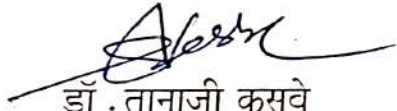 डॉ . तानाजी कसवे